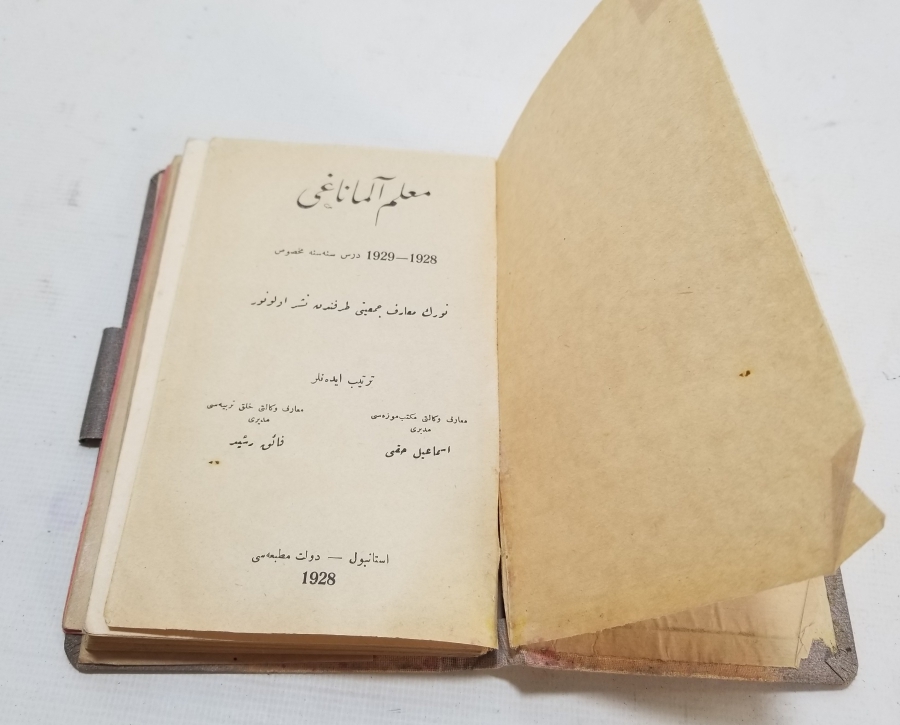 معلم آلماناغی
1928—1929 درس سنه‌سنه مخصوص
تورك معارف جمعیتی طرفندن نشر اولونور
ترتیب ایده‌نلر
معارف وكالتی مكتب موزه‌سی
مدیری
اسماعیل حقی
معارف وكالتی خلق تربیه‌سی
مدیری
فائق رشید
استانبول — دولت مطبعه‌سی
1928